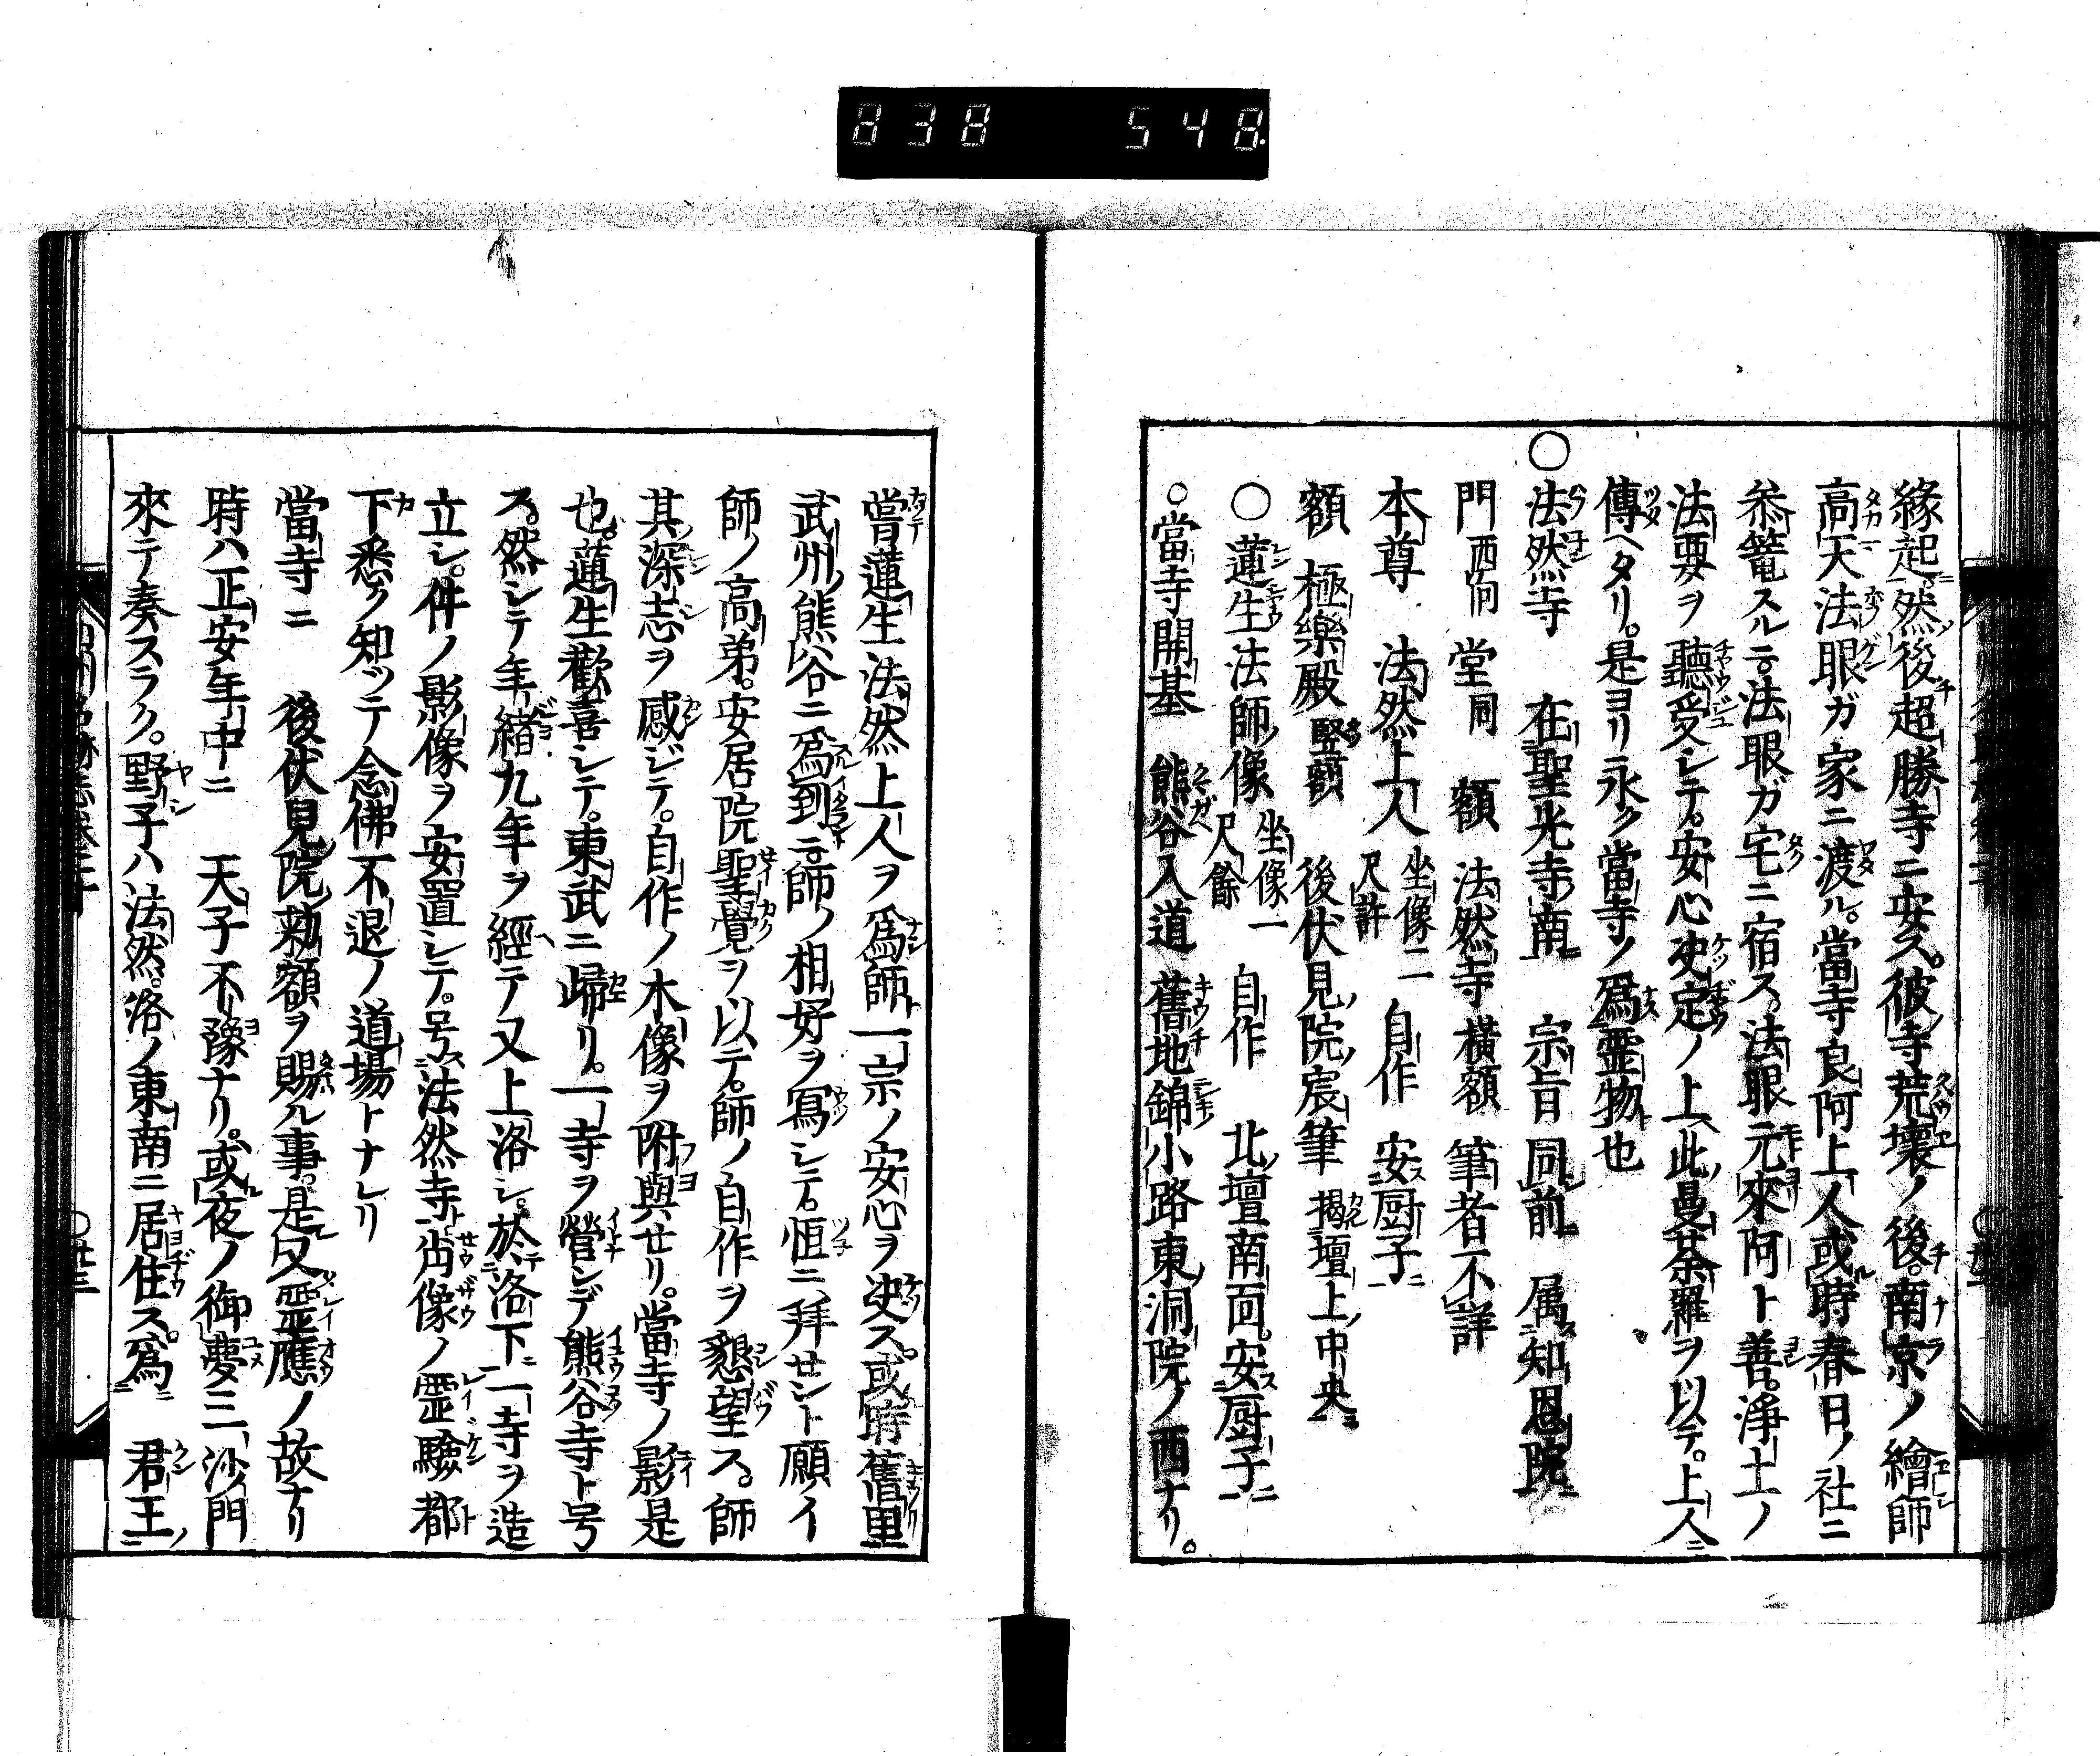 838 548
緣起。然後超勝寺ニ安ス。彼寺荒壞ノ後。南京ノ繪師
高天法眼ガ家ニ渡ル。當寺良阿上人或時春日ノ社ニ
叅篭スルニ法眼ガ宅ニ宿ス。法眼元來阿ト善。淨土ノ
法要ヲ聽受シテ。安心决定ノ上。此曼荼羅ヲ以テ。上人
傳ヘタリ。是ヨリ永ク當寺ノ爲霊物也
○法然寺 在聖光寺南 宗旨同前 属知恩院
門 西向 堂 同 額 法然寺 横額 筆者不詳
本尊 法然上人 坐像二尺許 自作 安厨子
額 極樂殿 竪額 後伏見院宸筆 揭壇上中央
○蓮生法師像 坐像一尺餘 自作 北壇南向。安厨子
○當寺開基 熊谷入道 舊地錦小路東洞院ノ西ナリ。
嘗蓮生法然上人ヲ爲師一宗ノ安心ヲ决ス。或時舊里
武州熊谷ニ爲到師ノ相好ヲ寫シテ。恒ニ拜セント願イ
師ノ高弟。安居院聖覺ヲ以テ。師ノ自作ヲ懇望ス。師
其深志ヲ感ジテ。自作ノ木像ヲ附與せリ。當寺ノ影是
也。蓮生歡喜シテ。東武ニ歸リ。一寺ヲ營ンデ熊谷寺ト号
ス。然シテ年緖九年ヲ經テ又上洛シ。於洛下一寺ヲ造
立シ。件ノ影像ヲ安置シテ。号法然寺。肖像ノ霊驗都
下悉ク知ッテ念佛不退ノ道場トナレリ
當寺ニ 後伏見院勅額ヲ賜ル事。是又霊應ノ故ナリ
時ハ正安年中ニ 天子不豫ナリ。或夜ノ御夢ニ沙門
來テ奏スラク。野子ハ法然。洛ノ東南ニ居住ス。爲 君王